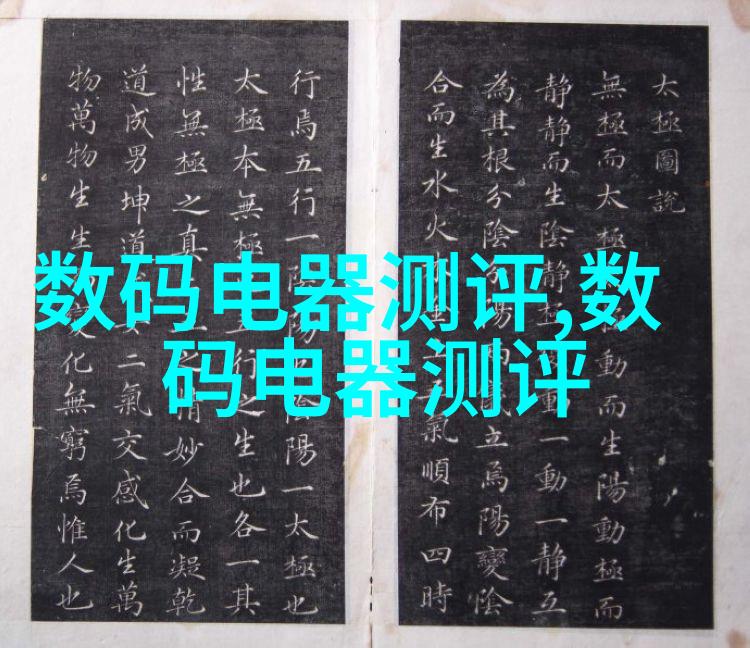 太極圖說
無極而太極動而生陽動極而
静静而生陰静極動一動一静互
為其根分陰分陽立焉陽變陰
合而生水火氣順布四時
行焉五行一陰陽陰陽一太極也
太極本無極五行之生也各一其
性無極之真之精妙合而凝乾
道成男坤道女二氣交感化生萬
物萬物生生變化無窮焉惟人也
数码电器测评,数
码电器测评